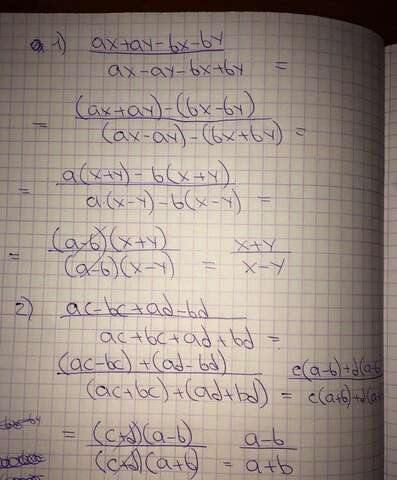 a 1) (ax+ay-bx-by)/(ax-ay-bx+by) =
= ((ax+ay)-(bx-by))/((ax-ay)-(bx+by)) =
= (a(x+y)-b(x+y))/(a(x-y)-b(x-y)) =
= ((a-b)(x+y))/((a-b)(x-y)) = (x+y)/(x-y)
2) (ac-bc+ad-bd)/(ac+bc+ad+bd) =
((ac-bc)+(ad-bd))/((ac+bc)+(ad+bd)) = (c(a-b)+d(a-b)/(c(a+b)+d(a+
= ((c+d)(a-b))/((c+d)(a+b)) = (a-b)/(a+b)